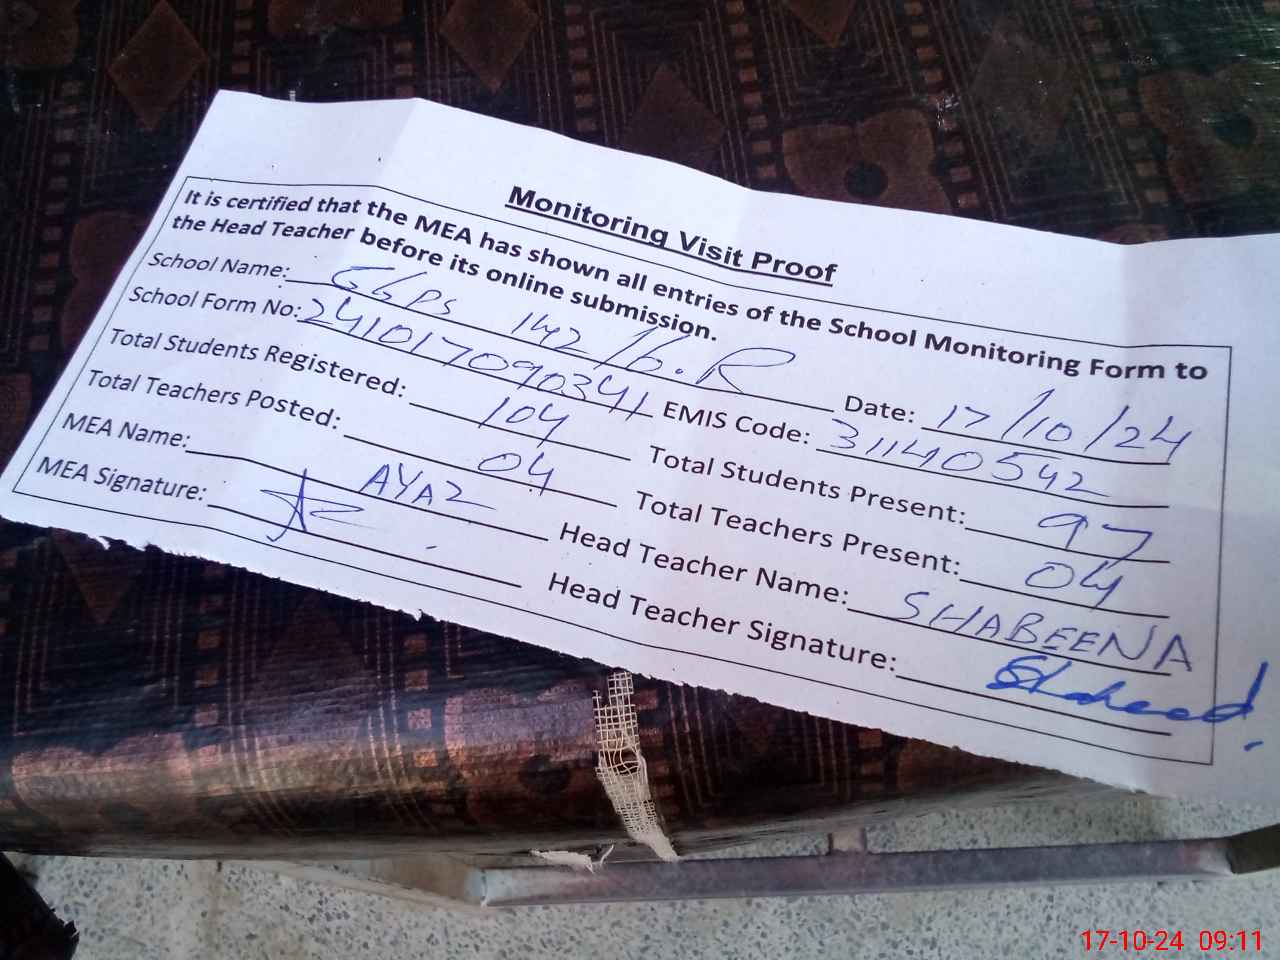 Monitoring Visit Proof
It is certified that the MEA has shown all entries of the School Monitoring Form to
the Head Teacher before its online submission.
School Name: GGPS 142/6.R Date: 17/10/24
School Form No: 24101709034 EMIS Code: 31140542
Total Students Registered: 104 Total Students Present: 97
Total Teachers Posted: 04 Total Teachers Present: 04
MEA Name: AYAZ Head Teacher Name: SHABEENA
MEA Signature: Head Teacher Signature:
17-10-24 09:11